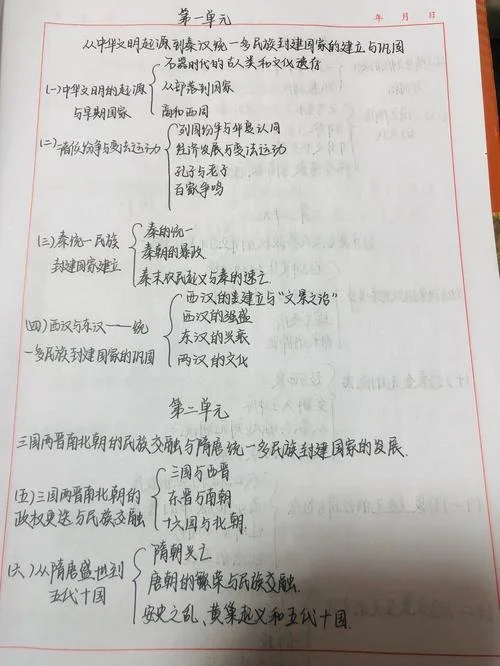 年 月 日
第一单元
从中华文明起源到秦汉统一多民族封建国家的建立与巩固
(一)中华文明的起源与早期国家
石器时代的古人类和文化遗存
从部落到国家
商和西周
(二)诸侯纷争与变法运动
列国纷争与华夏认同
经济发展与变法运动
孔子与老子
百家争鸣
(三)秦统一民族
封建国家建立
秦的统一
秦朝的暴政
秦末农民起义与秦的速亡
(四)西汉与东汉——统
一多民族封建国家的巩固
西汉的建立与"文景之治"
西汉的强盛
东汉的兴衰
两汉的文化
第二单元
三国两晋南北朝的民族交融与隋唐统一多民族封建国家的发展.
(五)三国两晋南北朝的
政权更迭与民族交融
三国与西晋
东晋与南朝
十六国与北朝.
(六)从隋唐盛世到
五代十国
隋朝兴亡
唐朝的繁荣与民族交融.
安史之乱、黄巢起义和五代十国.